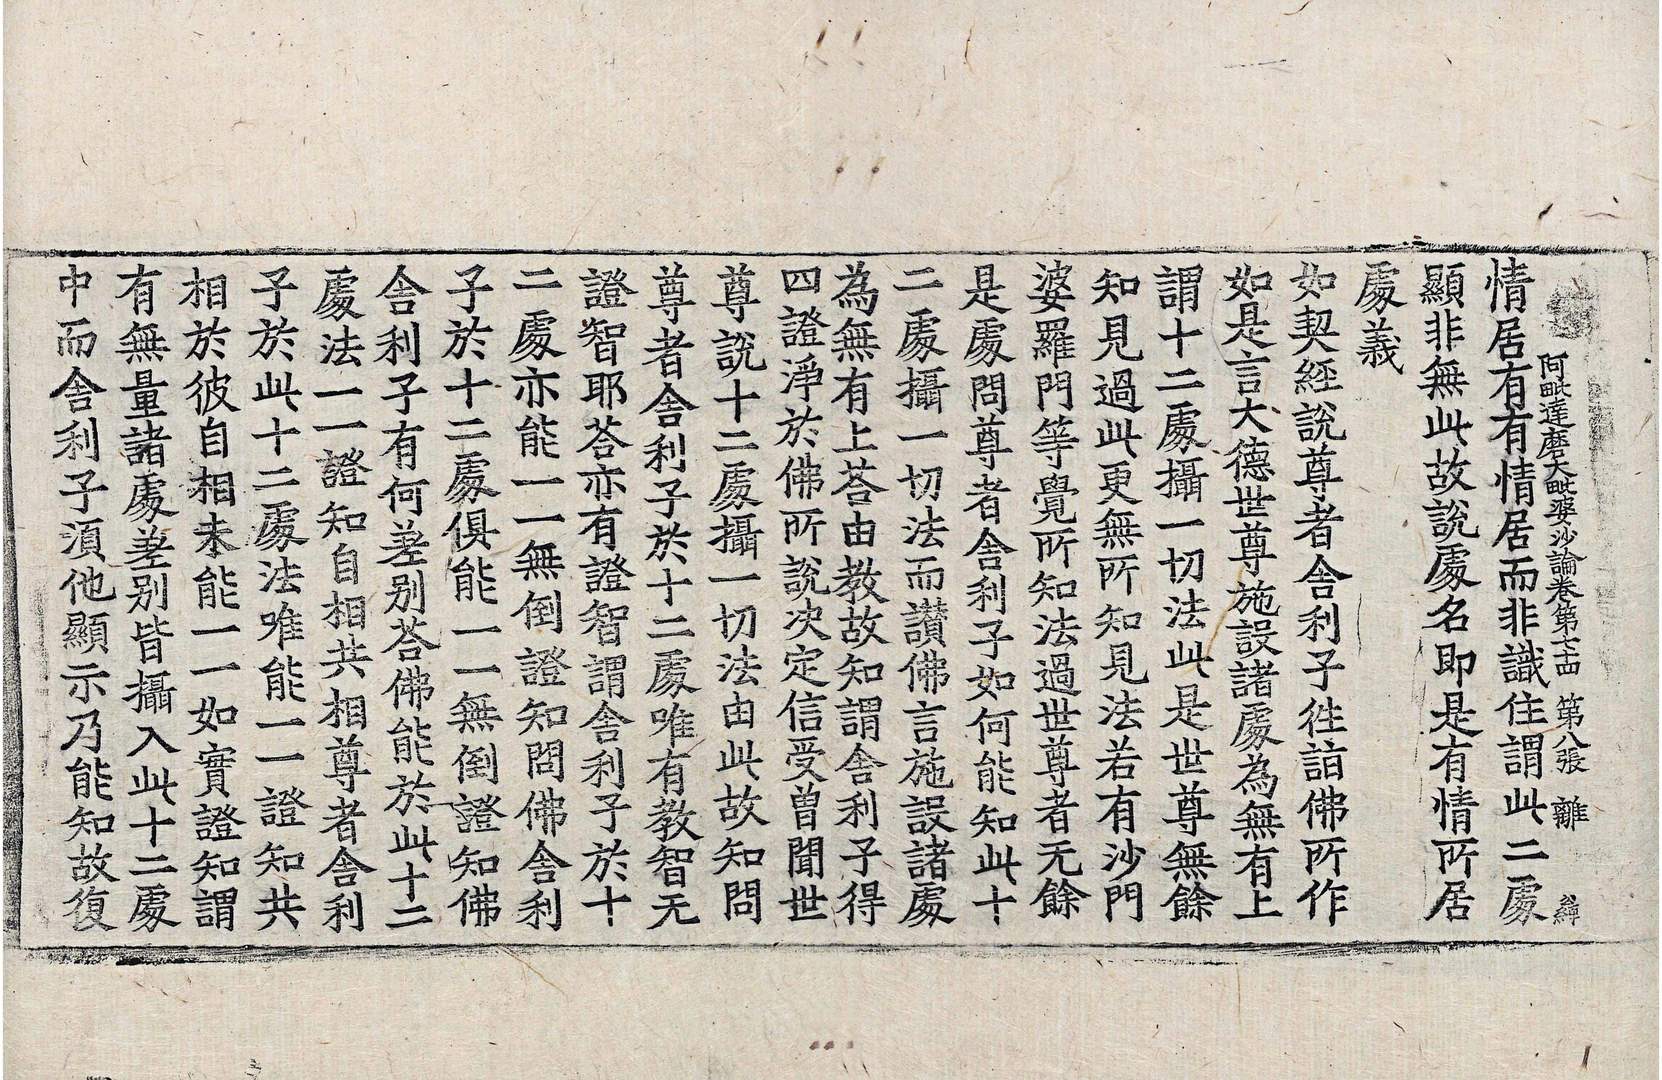 阿毗達磨大毗婆沙論卷第七十四 第八張 離
情居有有情居而非識住謂此二處
顯非無此故說處名即是有情所居
處義
如契經說尊者舍利子徃詣佛所作
如是言大德世尊施設諸處為無有上
謂十二處攝一切法此是世尊無餘
知見過此更無所知見法若有沙門
婆羅門等覺所知法過世尊者无餘
是處問尊者舍利子如何能知此十
二處攝一切法而讃佛言施設諸處
為無有上荅由教故知謂舍利子得
四證淨於佛所說決定信受曽聞世
尊說十二處攝一切法由此故知問
尊者舍利子於十二處唯有教智无
證智耶荅亦有證智謂舍利子於十
二處亦能一一無倒證知問佛舍利
子於十二處俱能一一無倒證知佛
舍利子有何差别荅佛能於此十二
處法一一證知自相共相尊者舍利
子於此十二處法唯能一一證知共
相於彼自相未能一一如實證知謂
有無量諸處差别皆攝入此十二處
中而舍利子湏他顯示乃能知故復